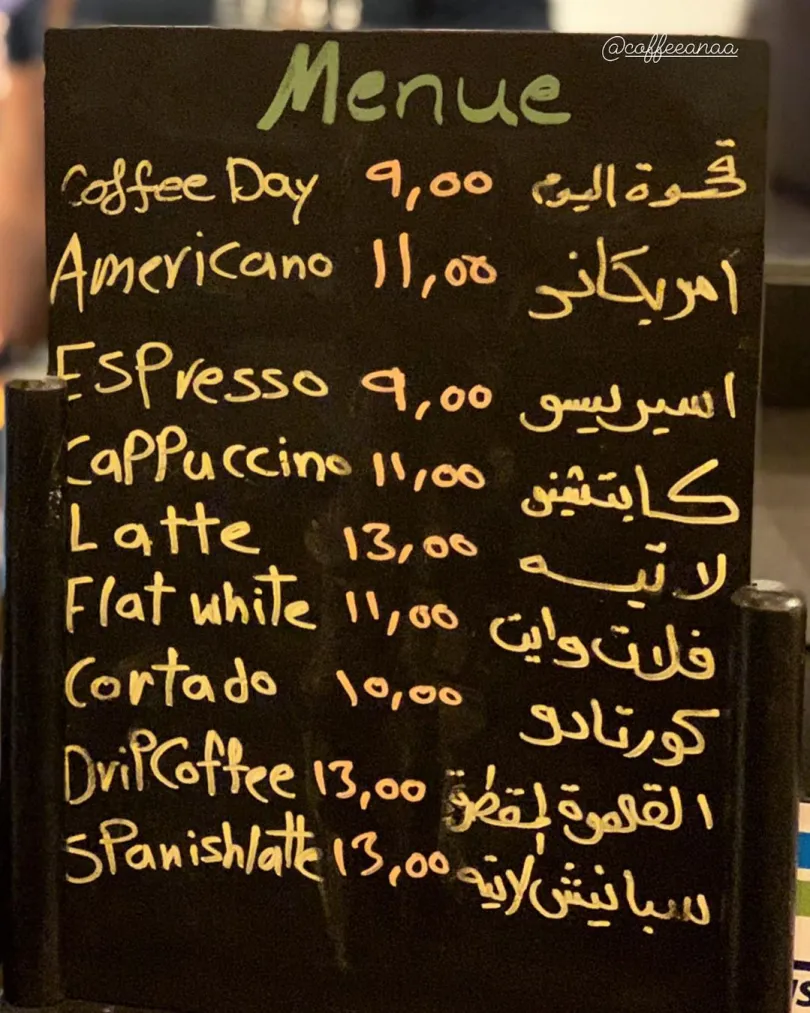 @coffeeanaa
Menue
Coffee Day 9,00 قهوة اليوم
Americano 11,00 امريكاني
ESPresso 9,00 اسبريسو
CaPPuccino 11,00 كابتشينو
Latte 13,00 لاتيه
Flat white 11,00 فلات وايت
Cortado 10,00 كورتادو
DripCoffee 13,00 القهوة المقطرة
SPanishlatte 13,00 سبانيش لاتيه